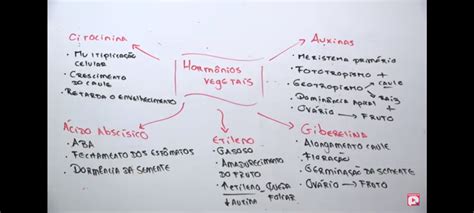 Citocinina
• Multiplicação
celular
• Crescimento
do caule
• Retarda o envelhecimento
Hormônios
vegetais
Auxinas
• Meristema primário
• Fototropismo +
• Geotropismo caule
- raiz +
• Dominância apical
• Ovário → Fruto
Ácido Abscísico
• ABA
• Fechamento dos estômatos
• Dormência da semente
Etileno
• Gasoso
• Amadurecimento
do fruto
• ↑ Etileno queda
↓ Auxina foliar
Giberelina
• Alongamento caule
• Floração
• Germinação da semente
• Ovário → Fruto